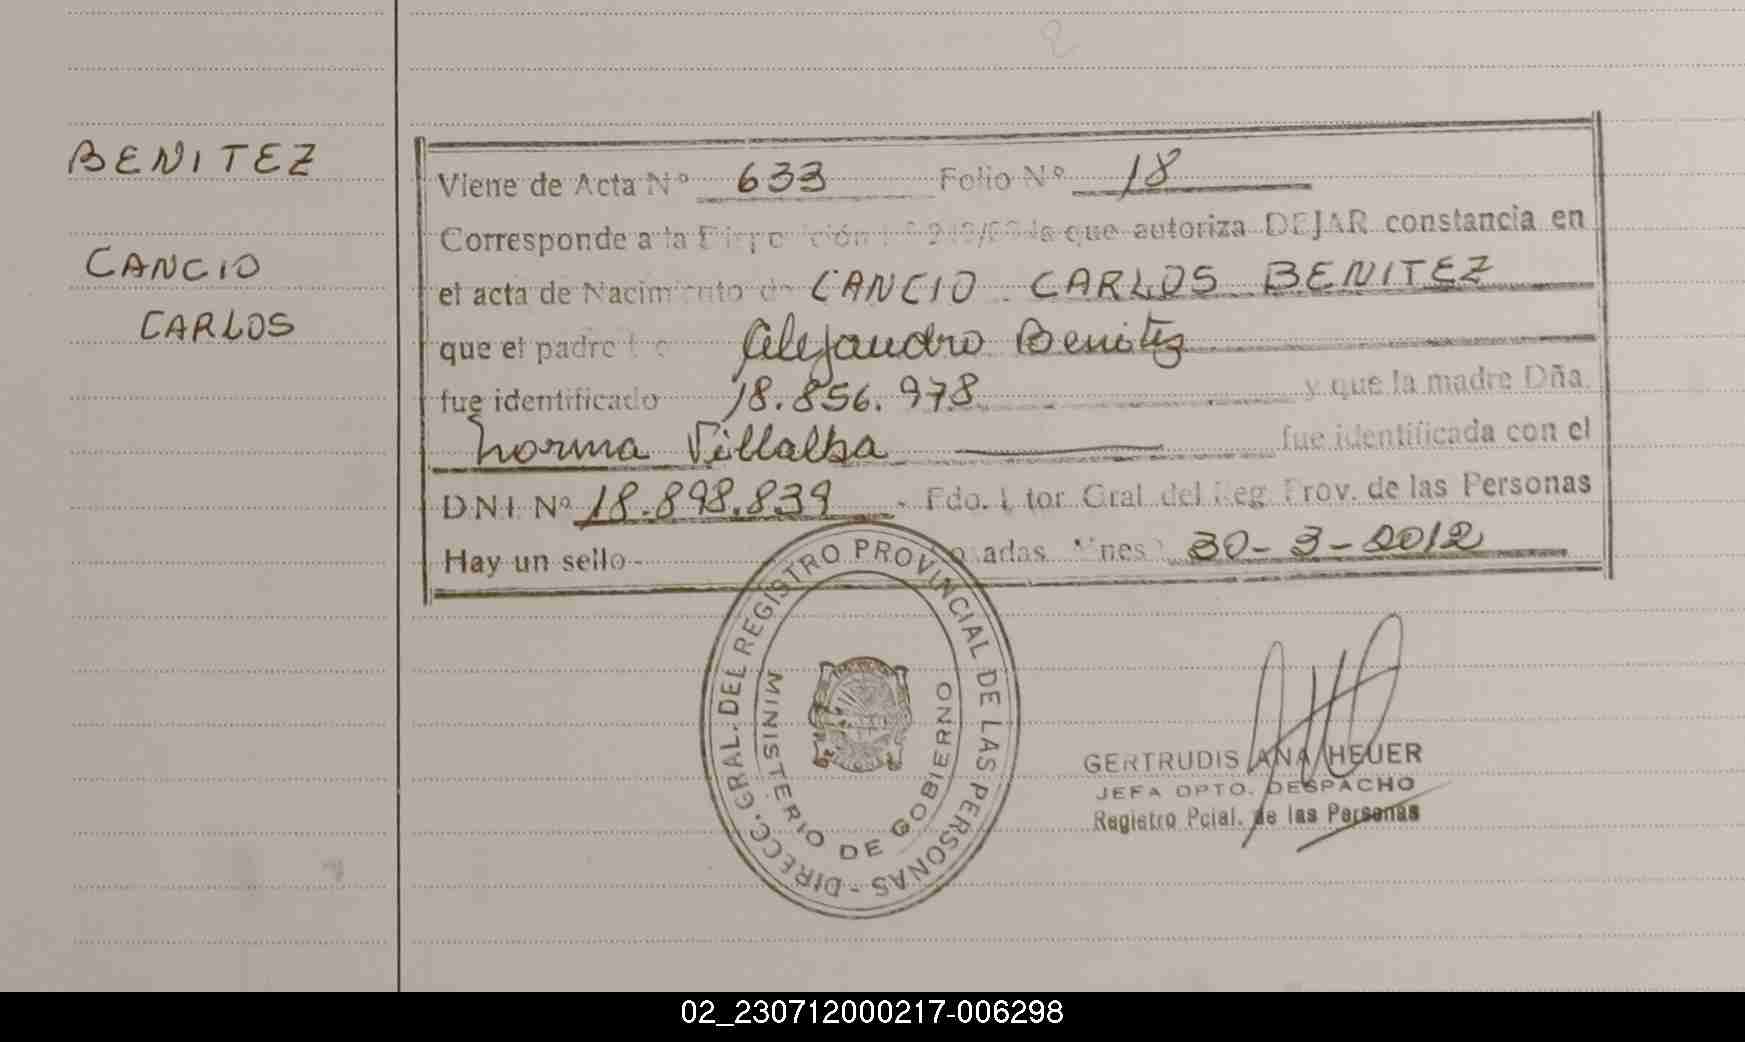 BENITEZ
CANCIO
CARLOS
Viene de Acta Nº 633 Folio Nº 18
Corresponde a la la que autoriza DEJAR constancia en
el acta de Nacimiento de CANCIO CARLOS BENITEZ
que el padre Alejandro Benitez
fue identificado 18.856.978 y que la madre Dña.
Norma Villalba fue identificada con el
D.N.I. Nº 18.898.839 - Fdo. Gral. del Reg. Prov. de las Personas
Hay un sello - adas. 30-3-2012
DIRECC. GRAL. DEL REGISTRO PROVINCIAL DE LAS PERSONAS -
MINISTERIO DE GOBIERNO
GERTRUDIS ANA HEUER
JEFA DPTO. DESPACHO
Registro Pcial. de las Personas
02_230712000217-006298